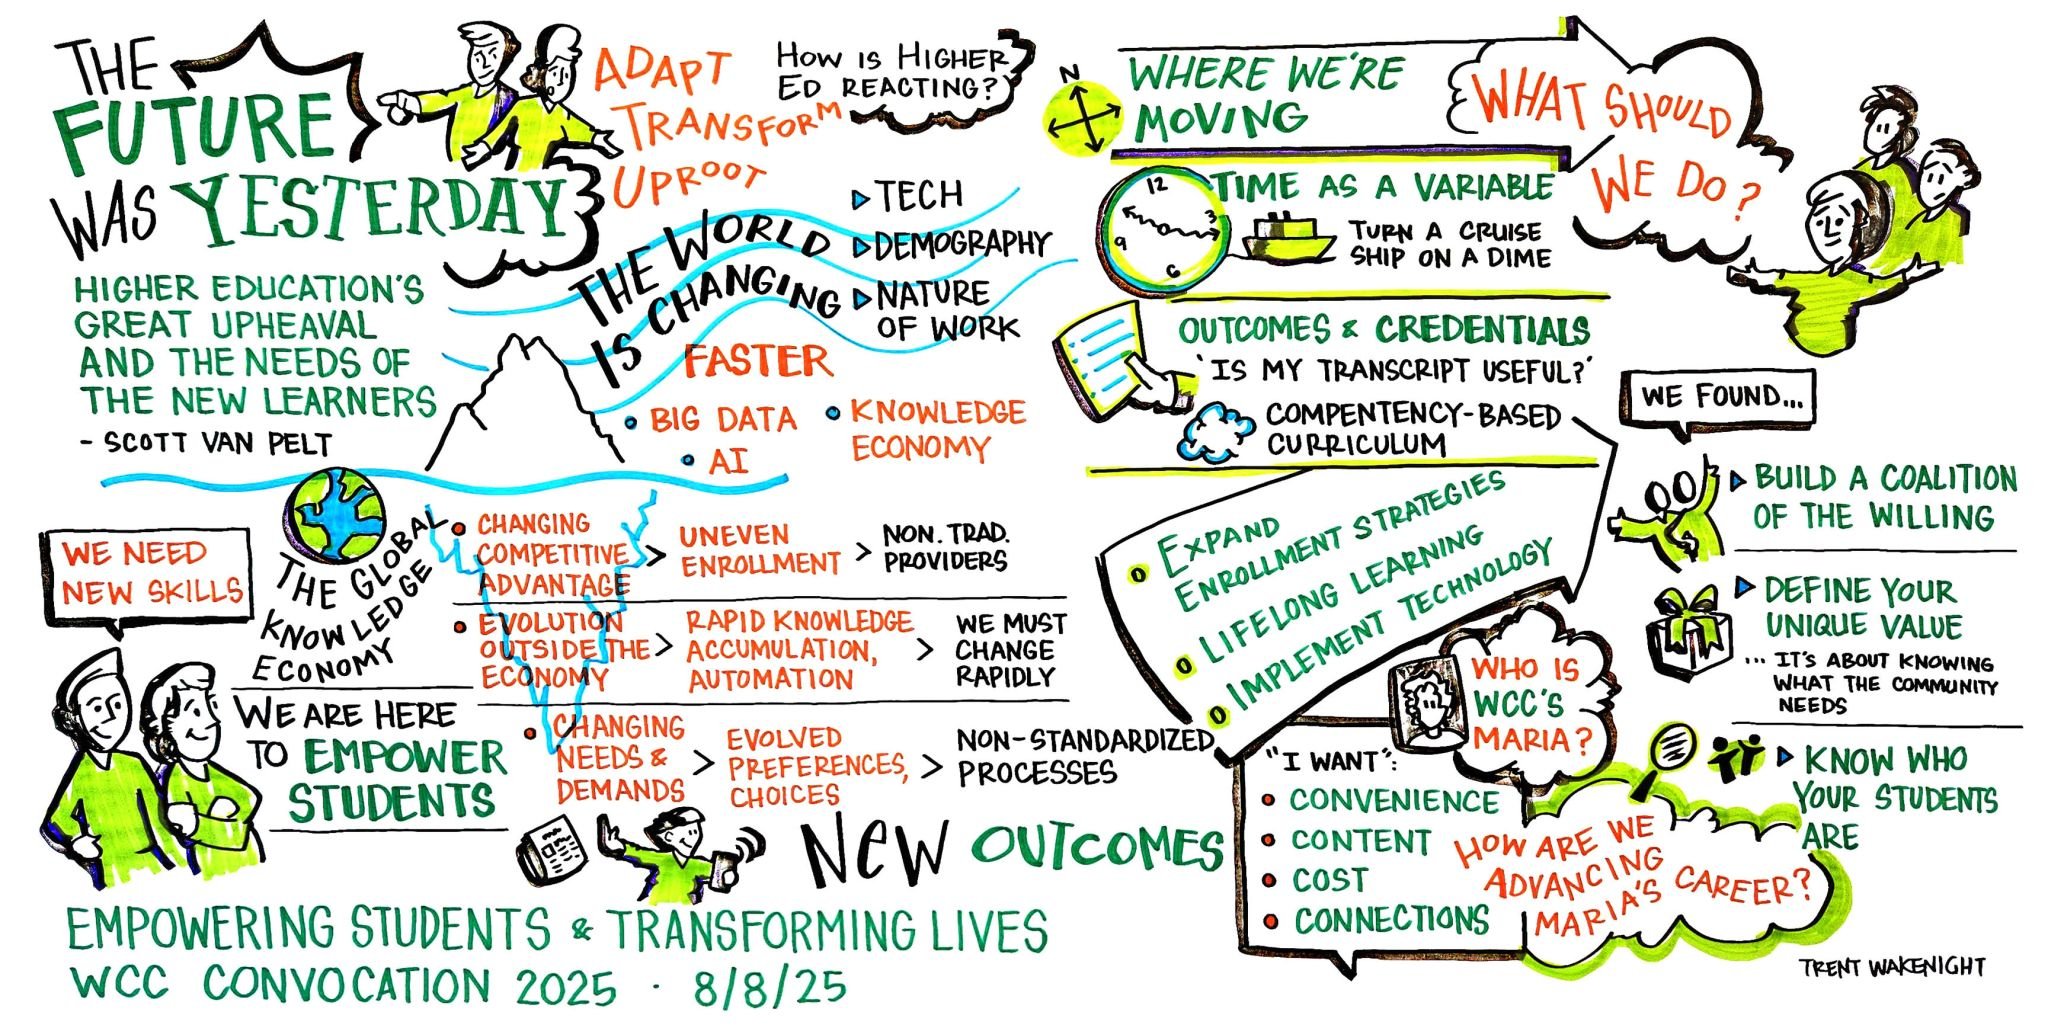 THE
FUTURE
WAS YESTERDAY
HIGHER EDUCATION'S
GREAT UPHEAVAL
AND THE NEEDS OF
THE NEW LEARNERS
- SCOTT VAN PELT
ADAPT
TRANSFORM
UPROOT
HOW IS HIGHER
ED REACTING?
THE WORLD
IS CHANGING
FASTER
TECH
DEMOGRAPHY
NATURE
OF WORK
BIG DATA
AI
KNOWLEDGE
ECONOMY
WE NEED
NEW SKILLS
THE GLOBAL
KNOWLEDGE
ECONOMY
WE ARE HERE
TO EMPOWER
STUDENTS
CHANGING
COMPETITIVE
ADVANTAGE
>
UNEVEN
ENROLLMENT
>
NON. TRAD.
PROVIDERS
EVOLUTION
OUTSIDE THE
ECONOMY
>
RAPID KNOWLEDGE
ACCUMULATION,
AUTOMATION
>
WE MUST
CHANGE
RAPIDLY
CHANGING
NEEDS &
DEMANDS
>
EVOLVED
PREFERENCES,
CHOICES
>
NON-STANDARDIZED
PROCESSES
NEW OUTCOMES
EMPOWERING STUDENTS & TRANSFORMING LIVES
WCC CONVOCATION 2025 · 8/8/25
N
WHERE WE'RE
MOVING
WHAT SHOULD
WE DO?
12
3
6
9
TIME AS A VARIABLE
TURN A CRUISE
SHIP ON A DIME
OUTCOMES & CREDENTIALS
'IS MY TRANSCRIPT USEFUL?'
COMPENTENCY-BASED
CURRICULUM
EXPAND
ENROLLMENT STRATEGIES
LIFELONG LEARNING
IMPLEMENT TECHNOLOGY
WHO IS
WCC'S
MARIA?
"I WANT":
CONVENIENCE
CONTENT
COST
CONNECTIONS
HOW ARE WE
ADVANCING
MARIA'S CAREER?
WE FOUND...
BUILD A COALITION
OF THE WILLING
DEFINE YOUR
UNIQUE VALUE
... IT'S ABOUT KNOWING
WHAT THE COMMUNITY
NEEDS
KNOW WHO
YOUR STUDENTS
ARE
TRENT WAKENIGHT